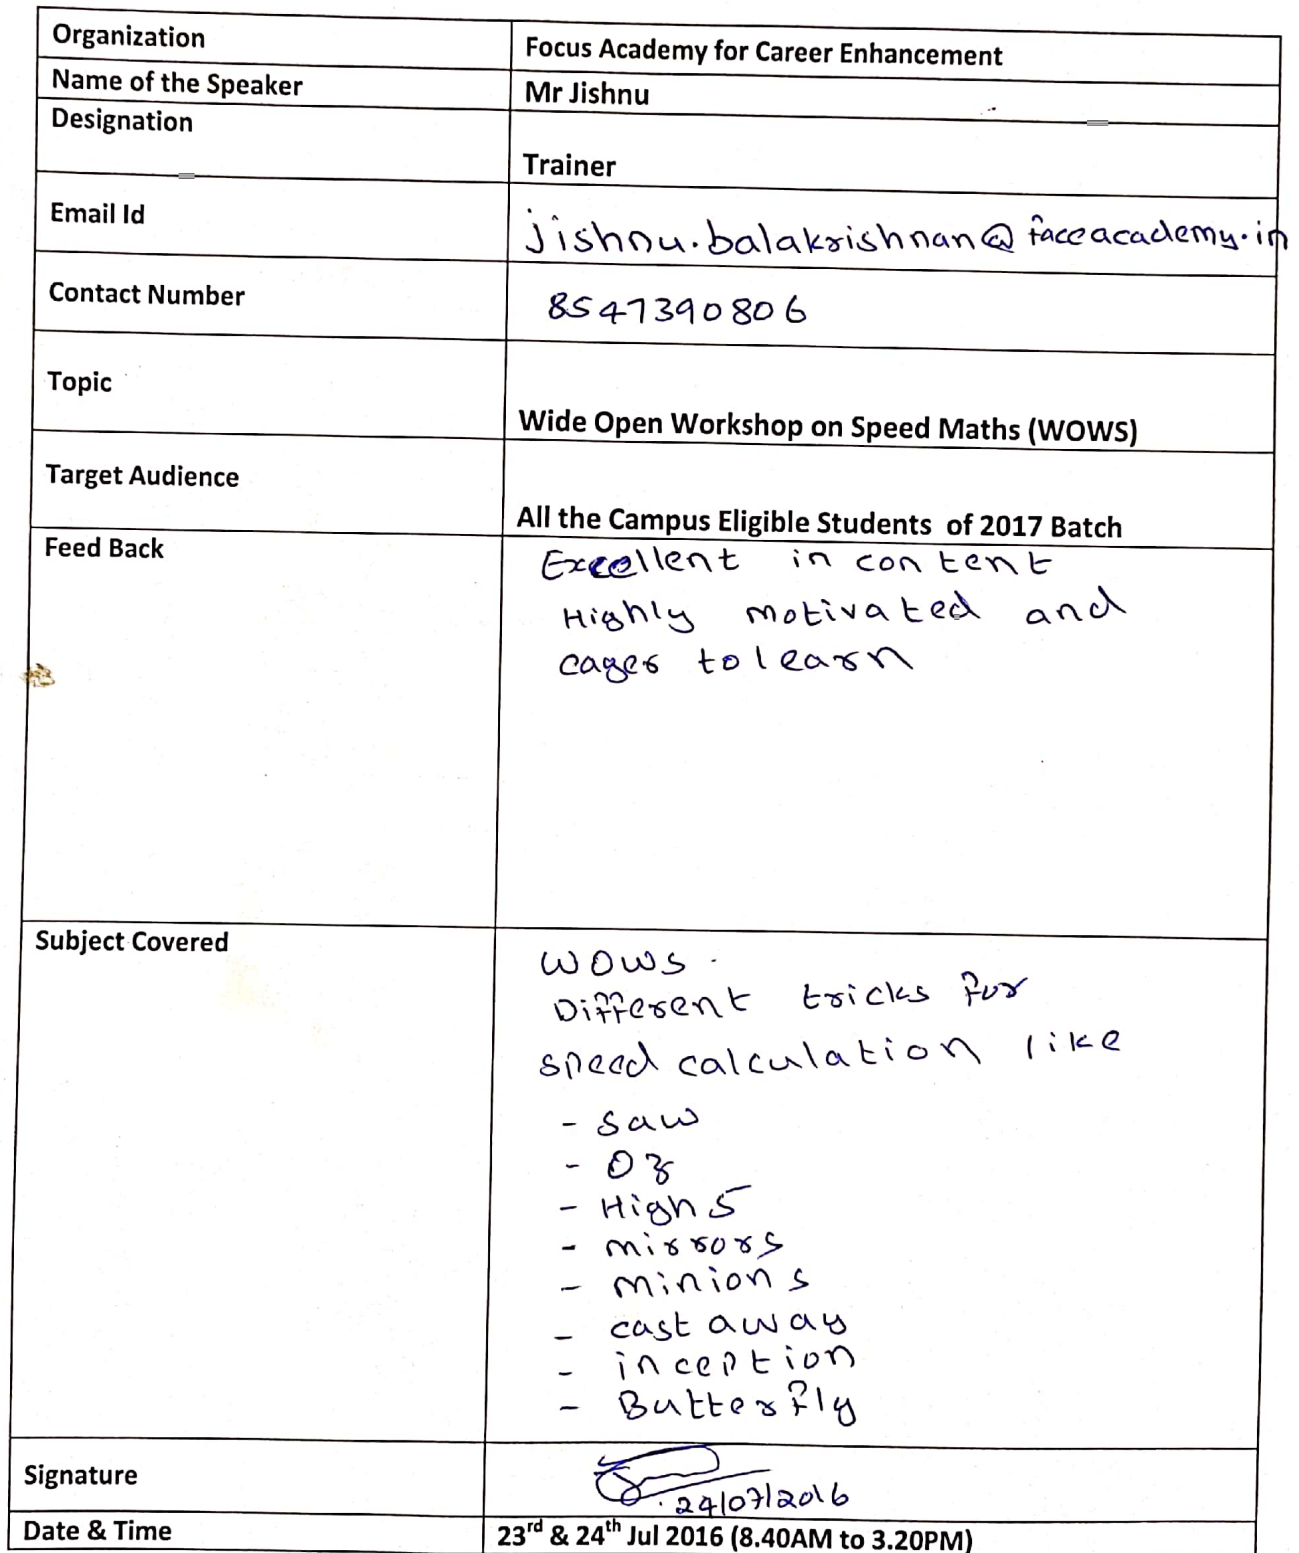 Organization Focus Academy for Career Enhancement
Name of the Speaker Mr Jishnu
Designation Trainer
Email Id jishnu.balakrishnan@faceacademy.in
Contact Number 8547390806
Topic Wide Open Workshop on Speed Maths (WOWS)
Target Audience All the Campus Eligible Students of 2017 Batch
Feed Back Excellent in content
Highly motivated and
eager to learn
Subject Covered WOWS.
Different tricks for
speed calculation like
- saw
- Oz
- High 5
- mirrors
- minions
- cast away
- inception
- Butterfly
Signature 24/07/2016
Date & Time 23rd & 24th Jul 2016 (8.40AM to 3.20PM)